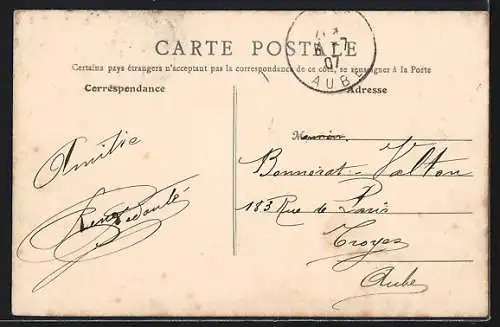 CARTE POSTALE
Certains pays étrangers n'acceptant pas la correspondance de ce côté, se renseigner à la Poste
Correspondance
Adresse
07
AUBE
Amitié
Bonnerot-Valton
183 Rue de Paris
Troyes
Aube